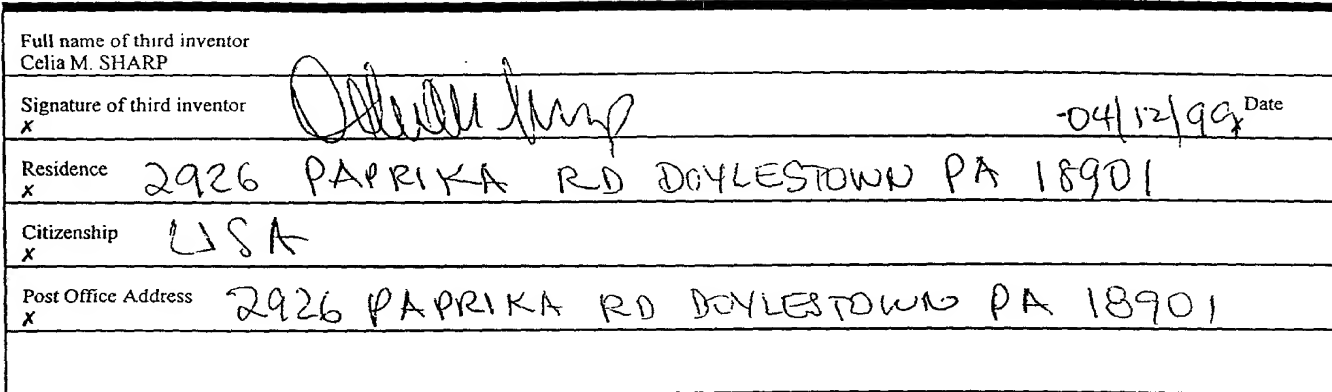 Full name of third inventor
Celia M. SHARP
Signature of third inventor
x 04/12/99 Date
Residence 2926 PAPRIKA RD DOYLESTOWN PA 18901
x
Citizenship USA
x
Post Office Address 2926 PAPRIKA RD DOYLESTOWN PA 18901
x